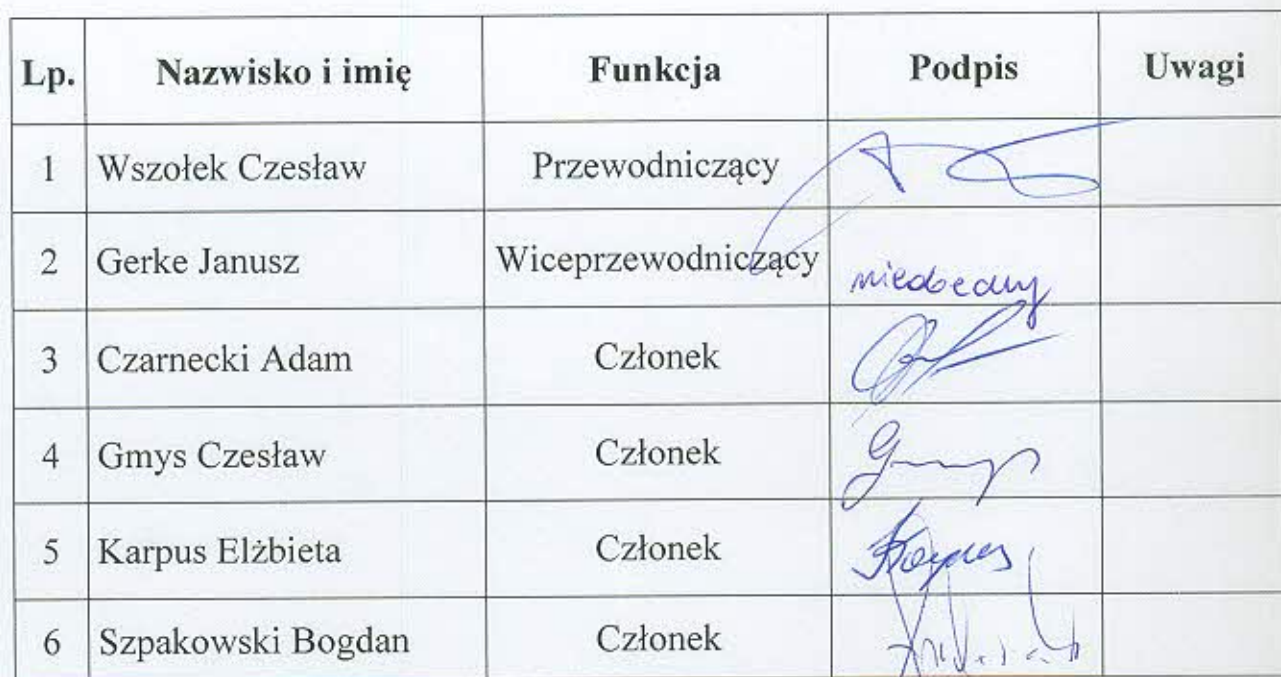 Lp. Nazwisko i imię Funkcja Podpis Uwagi
1 Wszołek Czesław Przewodniczący
2 Gerke Janusz Wiceprzewodniczący nieobecny
3 Czarnecki Adam Członek
4 Gmys Czesław Członek Gmys
5 Karpus Elżbieta Członek Karpus
6 Szpakowski Bogdan Członek